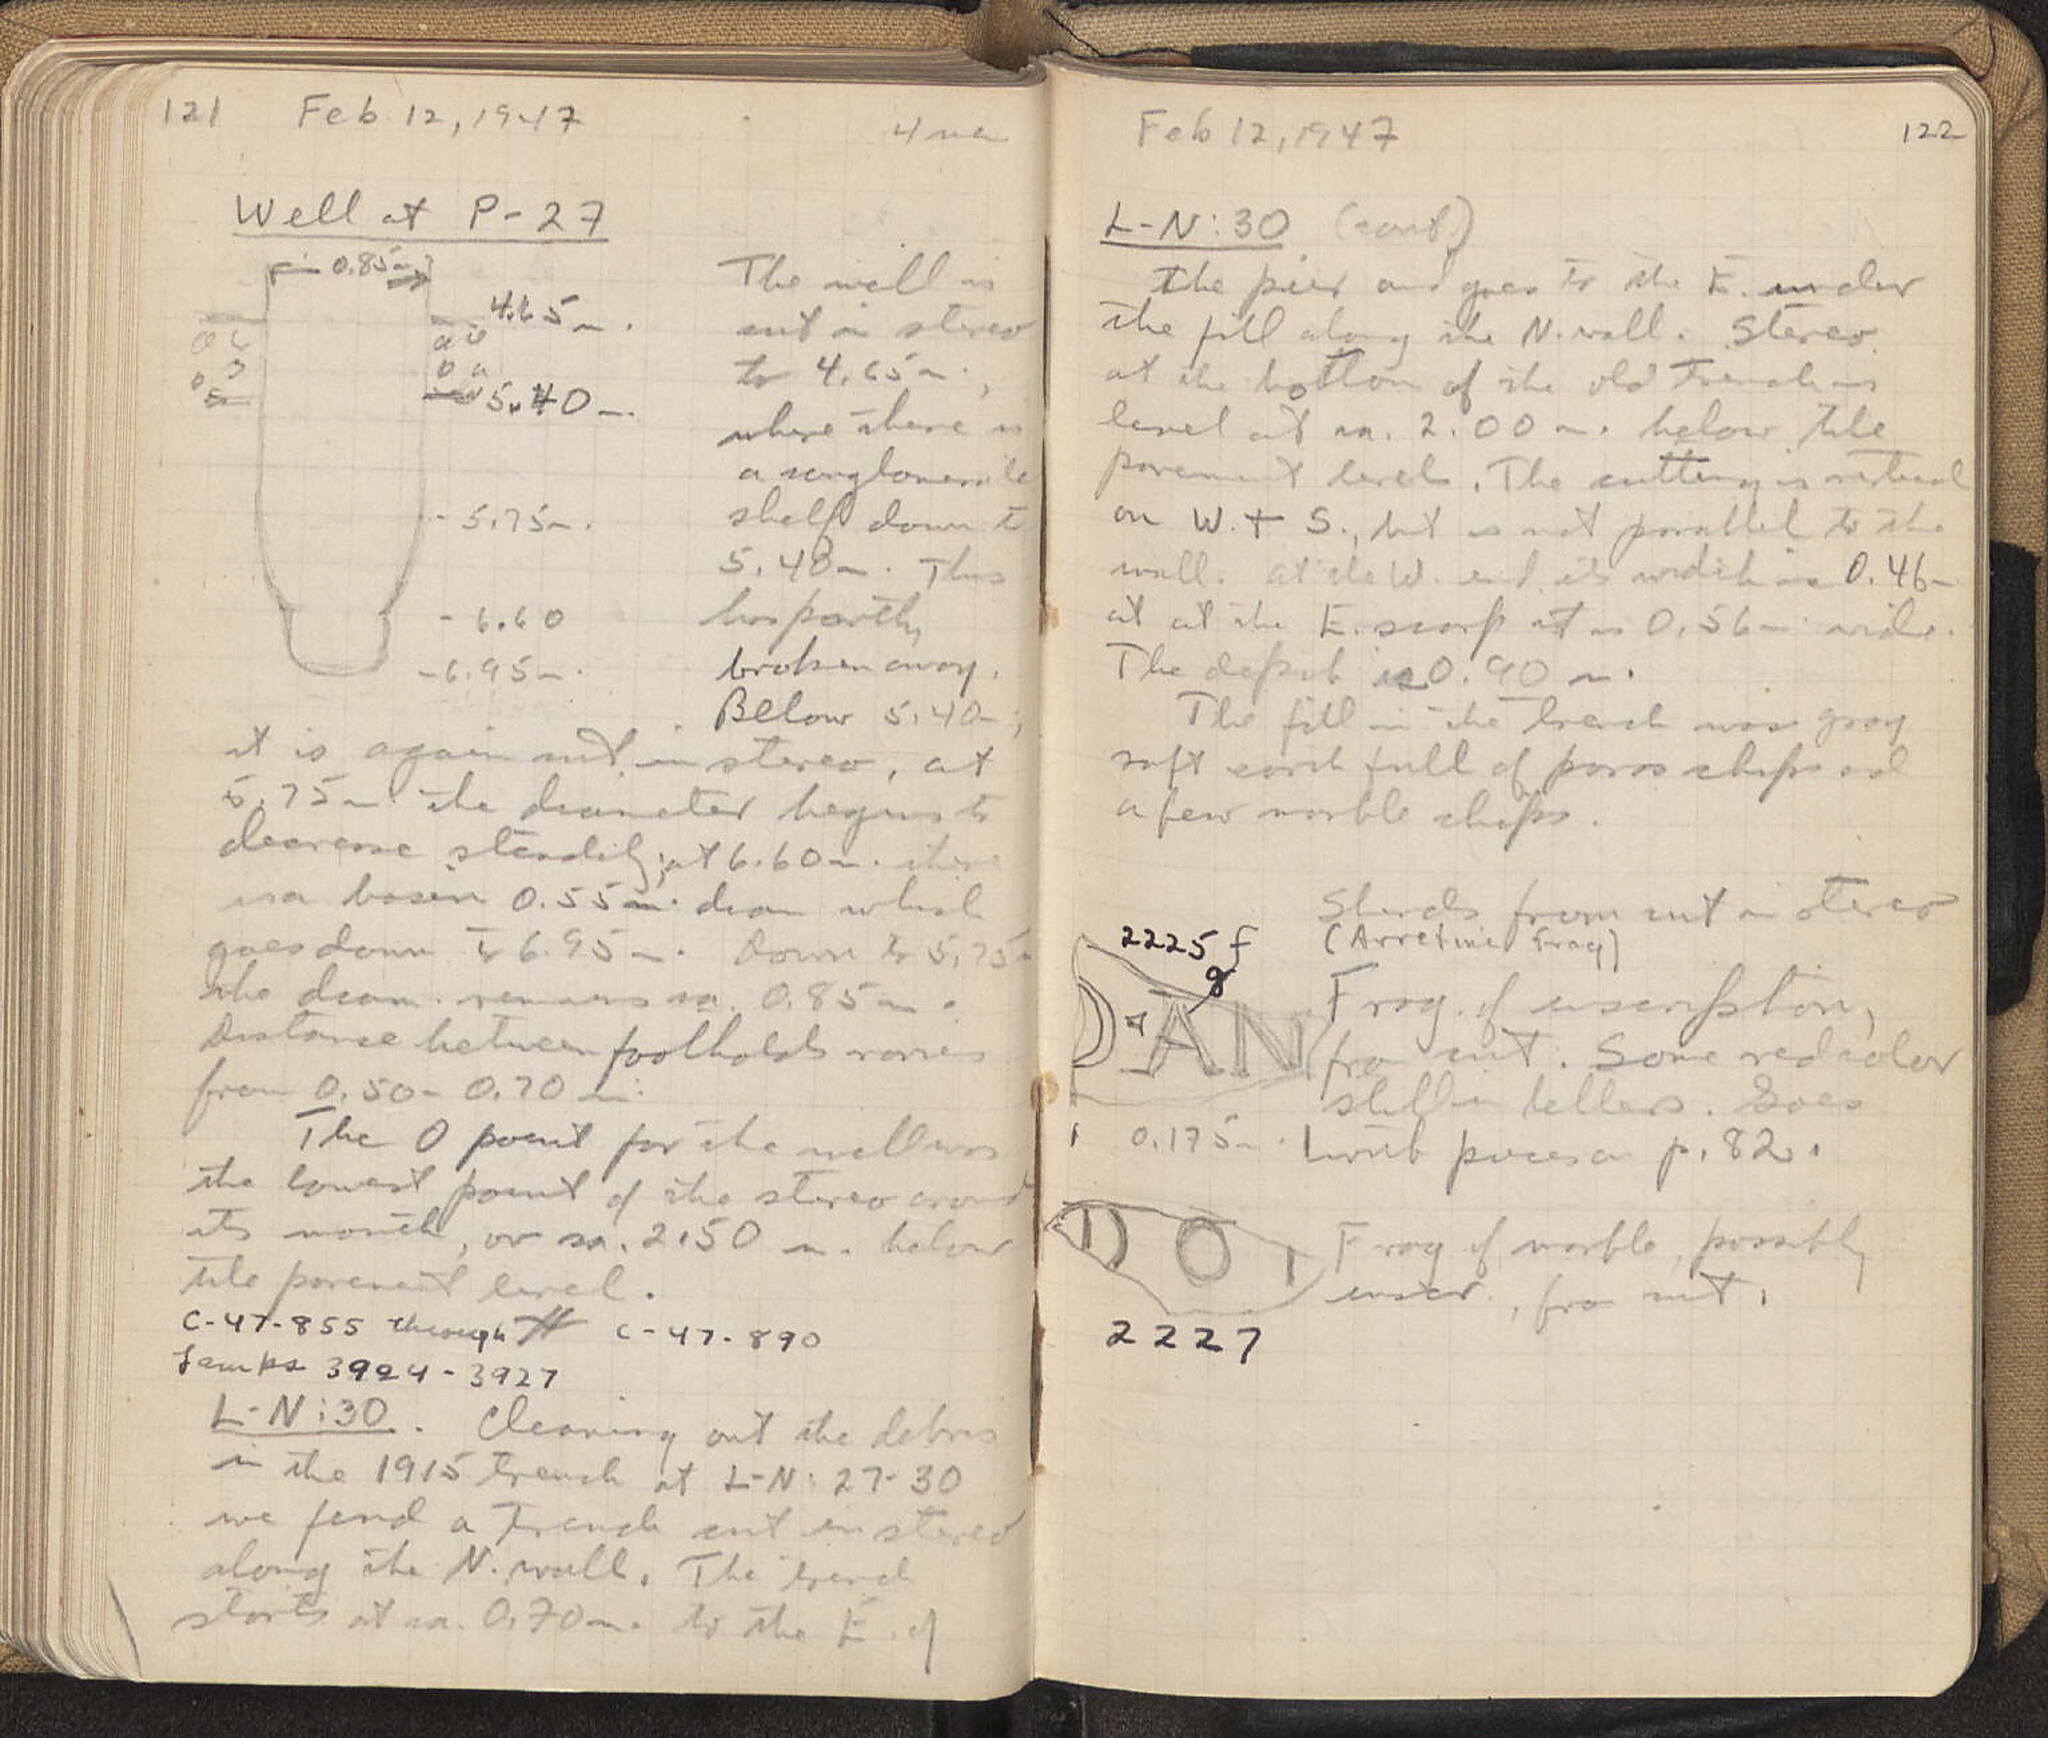 121 Feb 12, 1947
4 men
Well at P-27
0.85m
4.65 m.
5.40 m.
- 5.75m.
- 6.60
- 6.95m.
The well is
cut in stereo
to 4.65m.,
where there is
a conglomerate
shelf down to
5.40m. This
has partly
broken away.
Below 5.40m.,
it is again cut in stereo, at
5.75m the diameter begins to
decrease steadily; at 6.60m. there
is a basin 0.55m. diam which
goes down to 6.95m. Down to 5.75m
the diam. remains ca. 0.85m.
Distance between footholds varies
from 0.50-0.70 m.
The 0 point for the well was
the lowest point of the stereo around
its mouth, or ca. 2.50 m. below
tile pavement level.
C-47-855 through C-47-890
Lamps 3924-3927
L-N:30. Cleaning out the debris
in the 1915 trench at L-N:27-30
we found a trench cut in stereo
along the N. wall. The trench
starts at ca. 0.70m. to the E. of
Feb 12, 1947 122
L-N:30 (cont.)
the pier and goes to the E. under
the fill along the N. wall. Stereo
at the bottom of the old trench is
level at ca. 2.00m. below tile
pavement level. The cutting is vertical
on W. + S., but is not parallel to the
wall. At the W. end its width is 0.46m
at at the E. scarp it is 0.56m. wide.
The depth is 0.90 m.
The fill in the trench was gray
soft earth full of poros chips and
a few marble chips.
Sherds from cut in stereo
(Arretine frag)
2225 f
g
DAN
0.175m.
Frag. of inscription,
from cut. Some red color
still in letters. Goes
with pieces on p. 82.
IDOI
Frag of marble, possibly
inscr., from cut.
2227